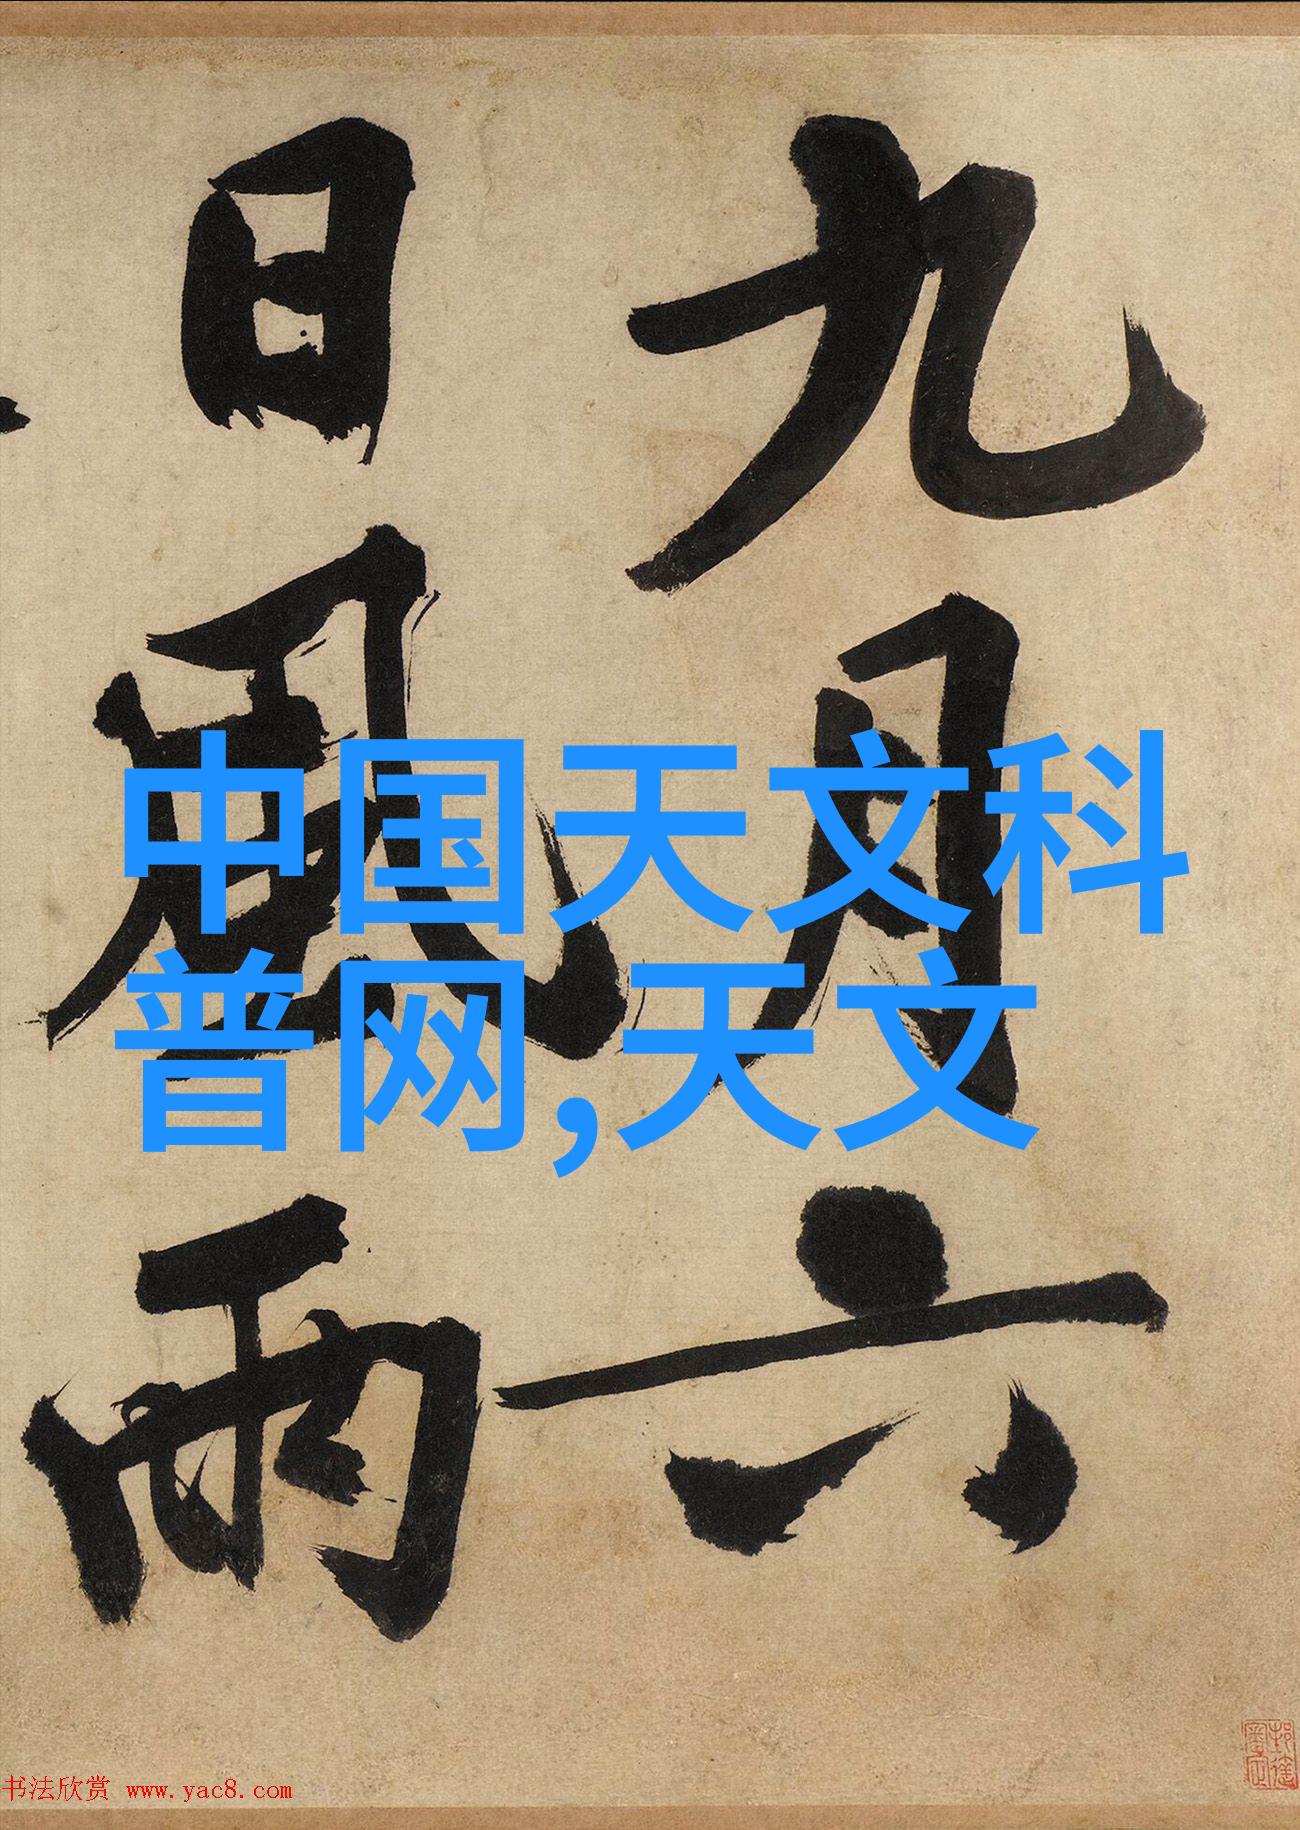 九月六
日風雨
中国天文科
普网,天文
书法欣赏 www.yac8.com